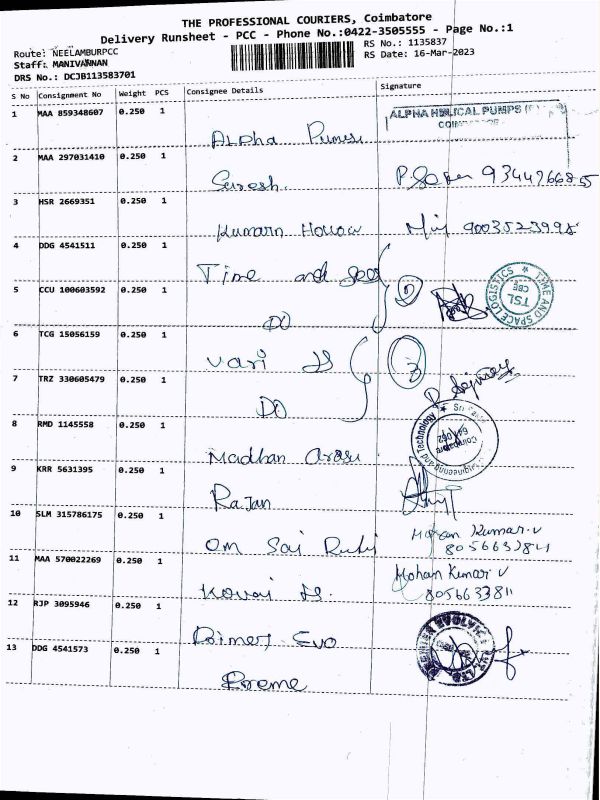 THE PROFESSIONAL COURIERS, Coimbatore
Delivery Runsheet - PCC - Phone No.:0422-3505555 - Page No.:1
Route: NEELAMBURPCC
RS No.: 1135837
Staff: MANIVANNAN
RS Date: 16-Mar-2023
DRS No.: DCJB113583701
S No Consignment No Weight PCS Consignee Details Signature
1 MAA 859348607 0.250 1
ALPHA HELICAL PUMPS
Alpha Pumps
2 MAA 297031410 0.250 1
Suresh. 9344966885
3 HSR 2669351 0.250 1
Kumarn 9003523998
4 DDG 4541511 0.250 1
Time and
5 CCU 100603592 0.250 1
2
TIME AND SPACE LOGISTICS
TSL
CBE
DO
6 TCG 15056159 0.250 1
Vari
7 TRZ 330605479 0.250 1
DO
8 RMD 1145558 0.250 1
Engineering and Technology
Coimbatore
Madhan Arasu
9 KRR 5631395 0.250 1
Rajan
10 SLM 315786175 0.250 1
Mohan Kumar. V
Om Sai
11 MAA 570022269 0.250 1
Mohan Kumar V
8056633811
Kovai
12 RJP 3095946 0.250 1
Evo
13 DDG 4541573 0.250 1